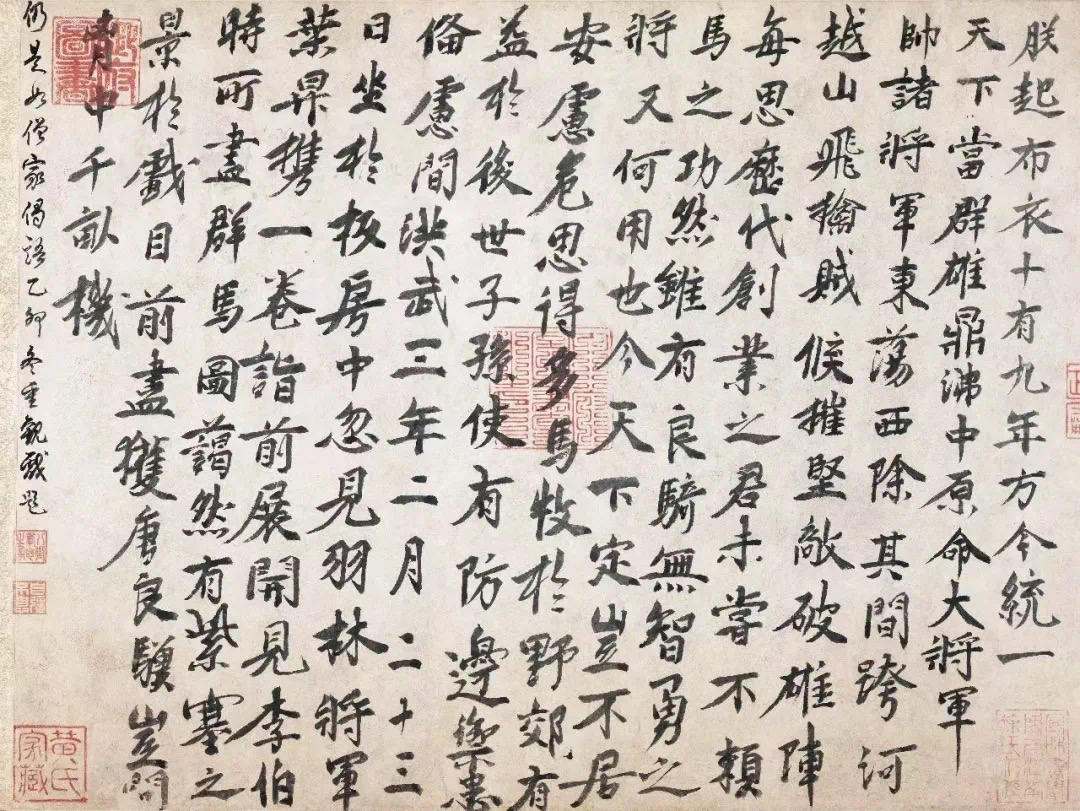 朕起布衣十有九年方今統一
天下當群雄鼎沸中原命大將軍
帥諸將軍東蕩西除其間跨河
越山飛擒賊候摧堅敵破雄陣
每思歷代創業之君未嘗不賴
馬之功然雖有良騎無智勇之
將又何用也今天下定豈不居
安慮危思得多馬牧於野郊有
益於後世子孫使有防邊禦患
俻慮間洪武三年二月二十三
日坐於板房中忽見羽林將軍
葉昇携一卷詣前展開見李伯
時所畫群馬圖藹然有紫塞之
景於戲目前盡獲唐良驥豈問
胷中千畝機
仍是如僧家偈語乙卯冬重觀戲題
黃氏家藏